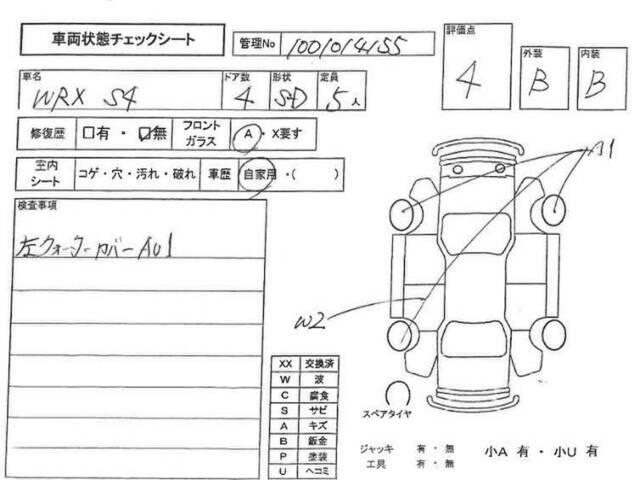 車両状態チェックシート
管理No 1001014155
評価点 4
外装 B
内装 B
車名 WRX S4
ドア数 4
形状 SD
定員 5人
修復歴 □有・☑無
フロントガラス A・X要す
室内シート コゲ・穴・汚れ・破れ
車歴 自家用・( )
検査事項
左クォーターカバーAU1
A1
W2
XX 交換済
W 波
C 腐食
S サビ
A キズ
B 鈑金
P 塗装
U ヘコミ
スペアタイヤ
ジャッキ 有・無
工具 有・無
小A 有・小U 有